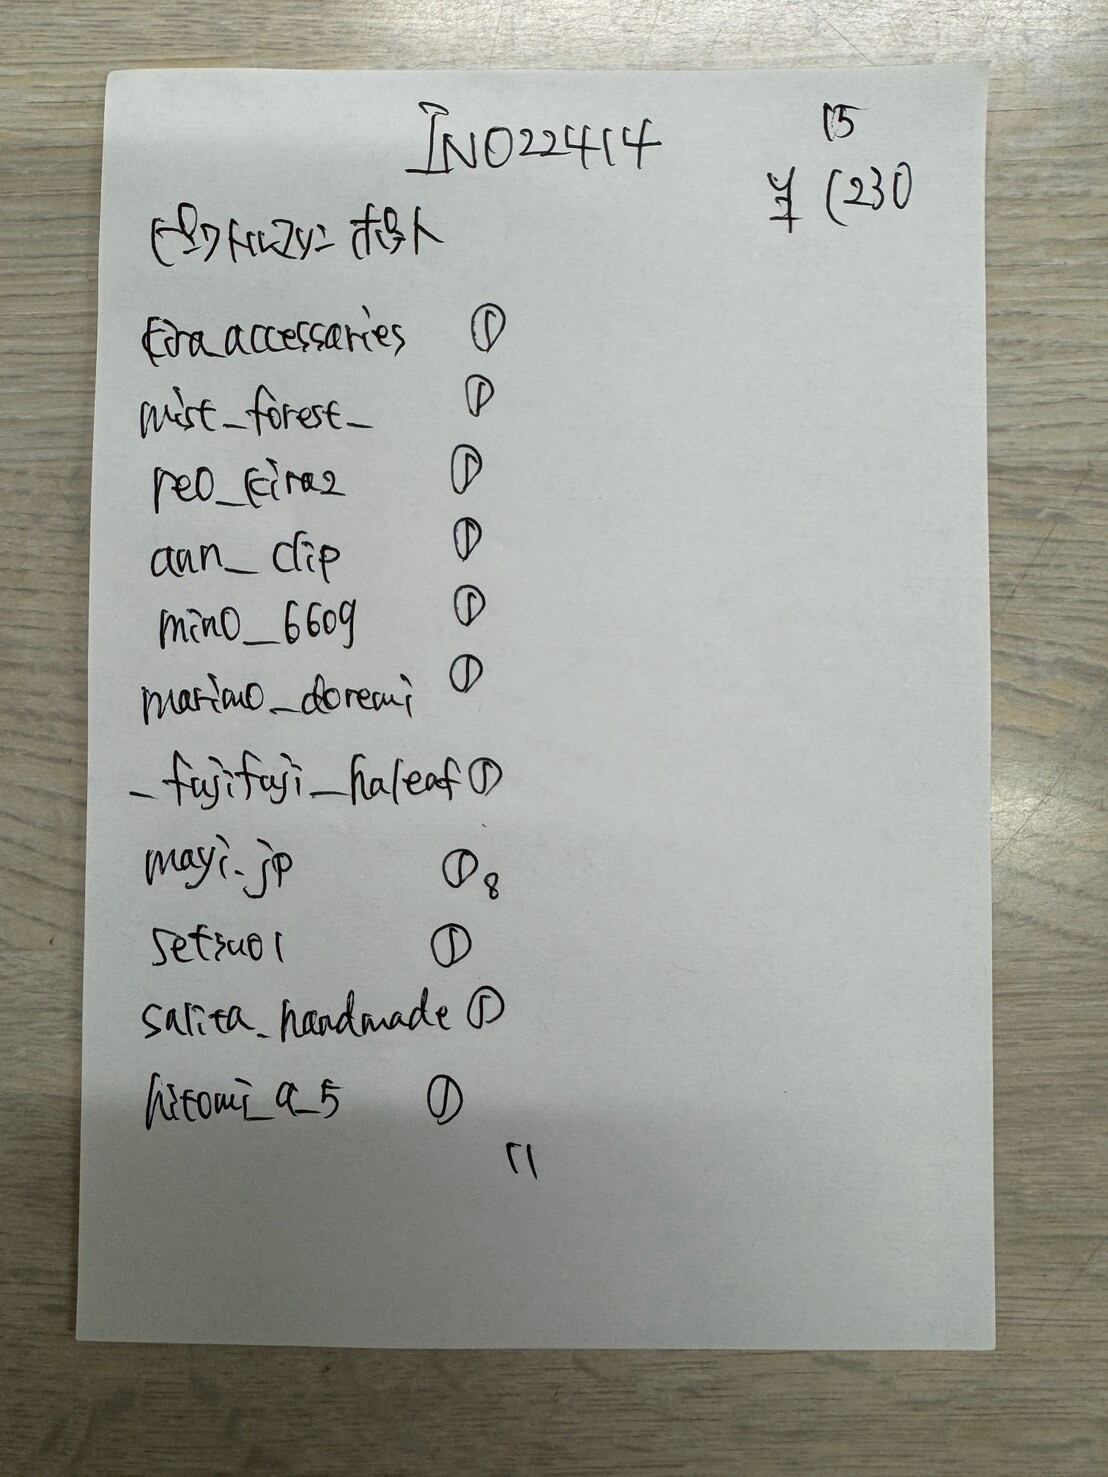 INO22414
15
¥ 1230
eira_accessaries ①
mist_forest_ ①
reo_eira2 ①
aun_clip ①
mino_6609 ①
marimo_doremi ①
_fujifuji_haleaf ①
mayi.jp ① 8
setsuo1 ①
salita_handmade ①
hitomi_a_5 ①
11